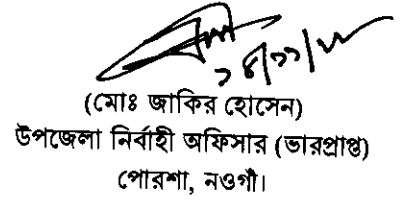 (মোঃ জাকির হোসেন)
উপজেলা নির্বাহী অফিসার (ভারপ্রাপ্ত)
পোরশা, নওগাঁ।